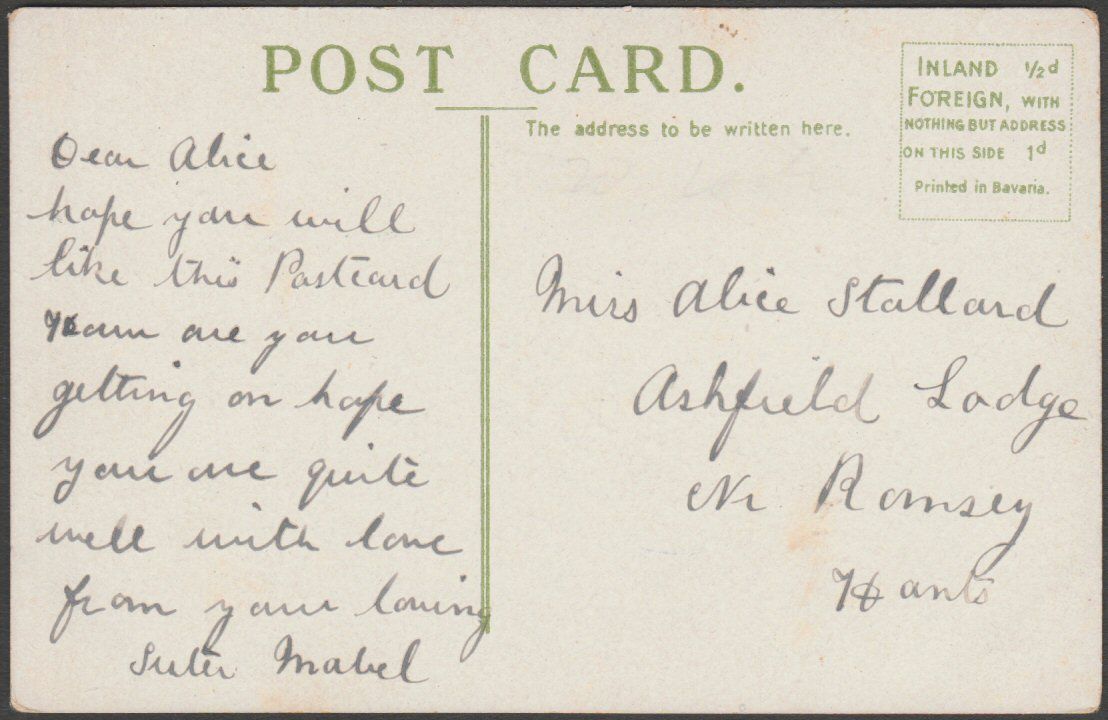 POST CARD.
The address to be written here.
INLAND ½d
FOREIGN, WITH
NOTHING BUT ADDRESS
ON THIS SIDE 1d
Printed in Bavaria.
Dear Alice
hope you will
like this Postcard
How are you
getting on hope
you are quite
well with love
from your loving
Sister Mabel
Miss Alice Stallard
Ashfield Lodge
Nr Romsey
Hants